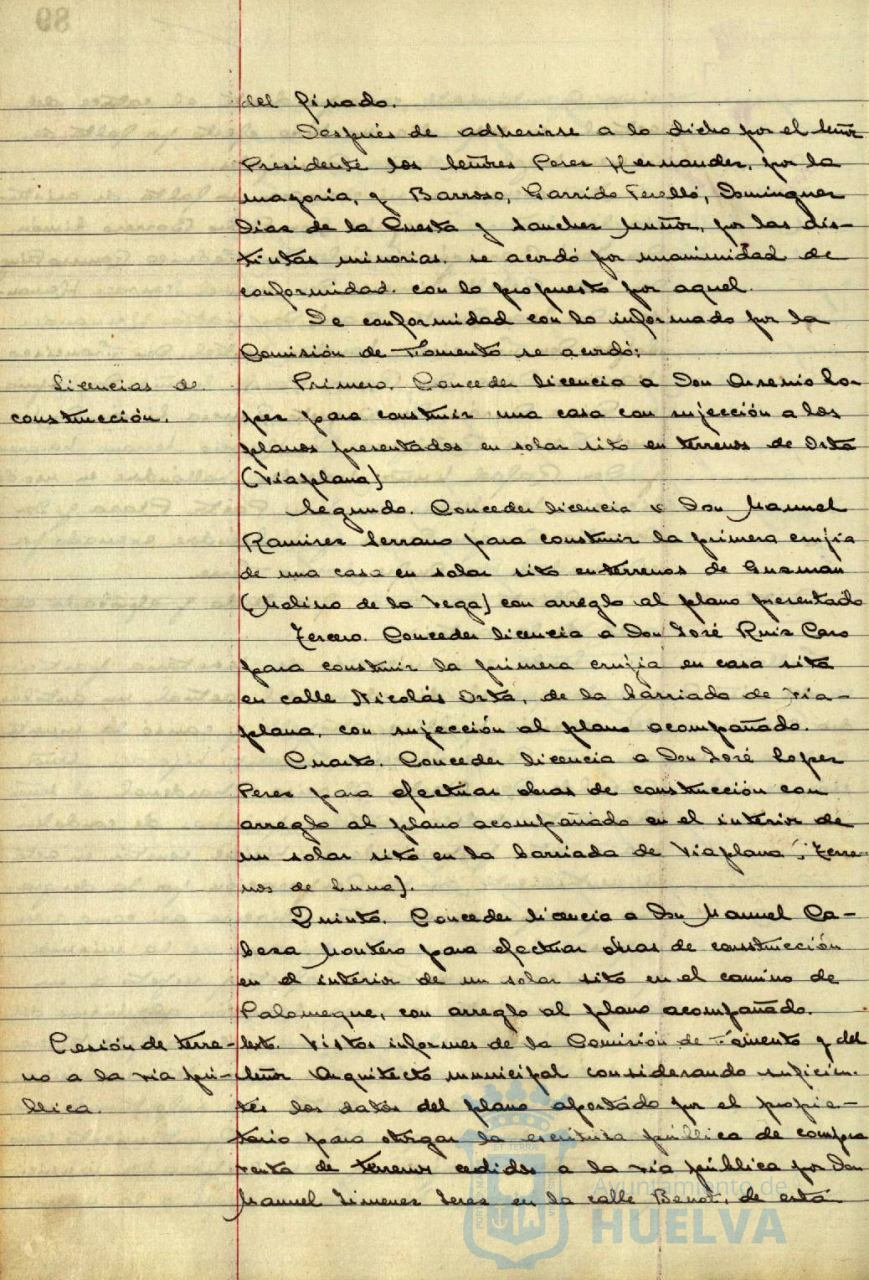 del finado.
Después de adherirse a lo dicho por el Señor
Presidente los Señores Perez Hernandez, por la
mayoria, y Barroso, Garrido Perelló, Dominguez
Diaz de la Cuesta y Sanchez Muñoz, por las dis-
tintas minorias, se acordó por unanimidad de
conformidad. con lo propuesto por aquel.
De conformidad con lo informado por la
Comisión de Fomento se acordó;
Licencias de
construcción.
Primero. Conceder licencia a Don Arsenio Lo-
pez para construir una casa con sujección a los
planos presentados en solar sito en terrenos de Orta
(Viaplana)
Segundo. Conceder licencia a Don Manuel
Ramirez Serrano para construir la primera crujia
de una casa en solar sito en terrenos de Guzman
(Molino de la Vega) con arreglo al plano presentado
Tercero. Conceder licencia a Don José Ruiz Caro
para construir la primera crujia en casa sita
en calle Nicolás Orta, de la barriada de Via-
plana, con sujección al plano acompañado.
Cuarto. Conceder licencia a Don José Lopez
Perez para efectuar obras de construcción con
arreglo al plano acompañado en el interior de
un solar sito en la barriada de Viaplana (Terre-
nos de Luna).
Quinto. Conceder licencia a Don Manuel Ca-
beza Montero para efectuar obras de construcción
en el interior de un solar sito en el camino de
Palomeque, con arreglo al plano acompañado.
Cesión de terre-
no a la via pú-
blica.
Sexto. Vistos informes de la Comisión de Fomento y del
Señor Arquitecto municipal considerando suficien-
tes los datos del plano aportado por el propie-
tario para otorgar la escritura pública de compra
venta de terrenos cedidos a la via pública por Don
Manuel Jimenez en la calle Benot, de esta
Ayuntamiento de
HUELVA